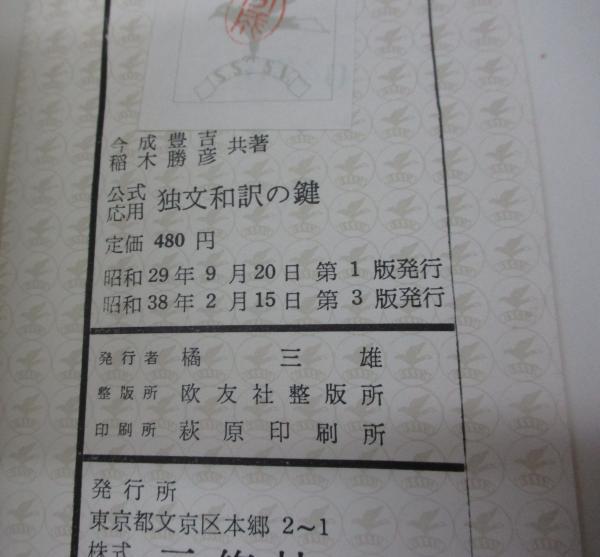 今成豊吉
稲木勝彦 共著
公式
応用 独文和訳の鍵
定価 480 円
昭和29年 9 月20日 第 1 版発行
昭和38年 2 月15日 第 3 版発行
発行者 橘 三 雄
整版所 欧友社整版所
印刷所 萩原印刷所
発行所
東京都文京区本郷 2~1
株式